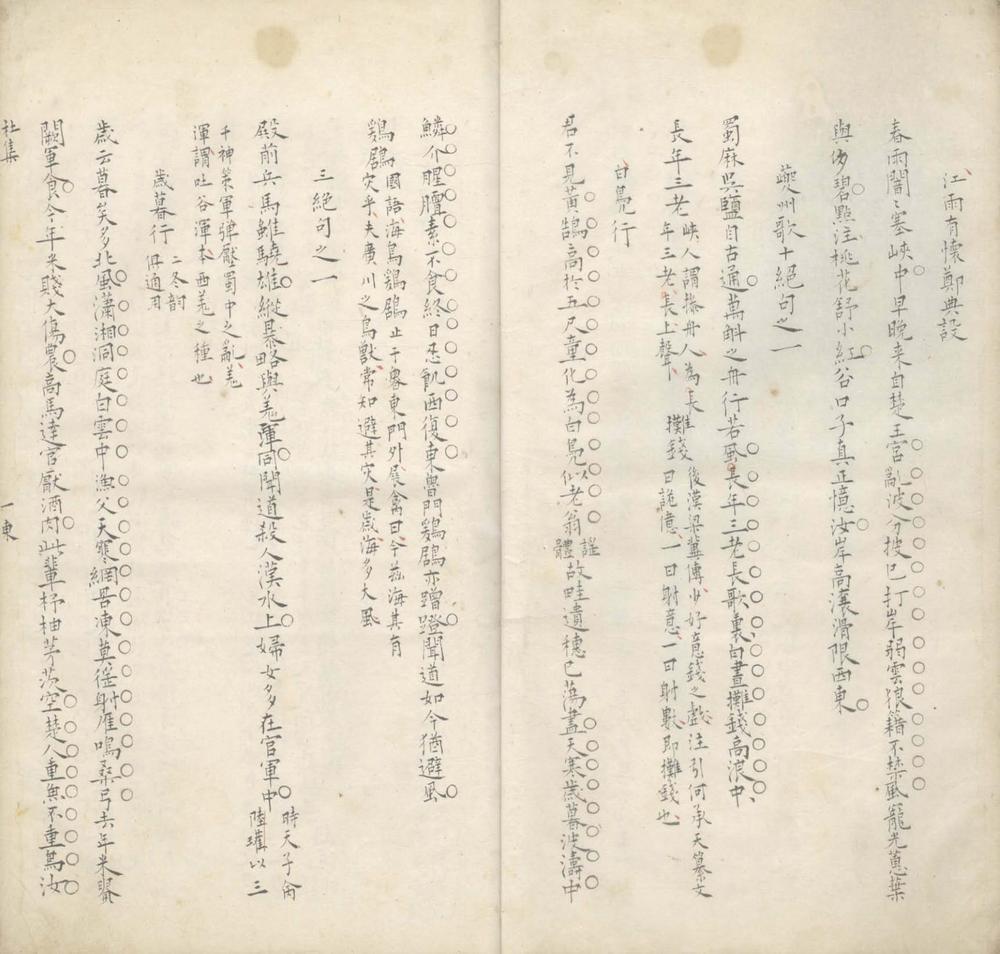 江雨有懷鄭典設
春雨闇〻塞峽中早晚來自楚王宮亂波分披已打岸弱雲狼籍不禁風寵光蕙葉
與多碧點注桃花舒小紅谷口子真正憶汝岸高瀼滑限西東
夔州歌十絕句之一
蜀麻吳鹽自古通萬斛之舟行若風長年三老長歌裏白晝攤錢高浪中
長年三老
峽人謂操舟人為長
年三老長上聲
攤錢
後漢梁冀傳少好意錢之戲注引何承天纂文
曰詭億一曰射意一曰射數即攤錢也
白鳧行
君不見黃鵠高於五尺童化為白鳧似老翁故畦遺穗已蕩盡天寒歲暮波濤中
謡
體
鱗介腥膻素不食終日忍飢西復東魯門鶢鶋亦蹭蹬聞道如今猶避風
鶢鶋國語海鳥鶢鶋止于魯東門外展禽曰今茲海其有
災乎夫廣川之鳥獸常知避其災是歲海多大風
三絕句之一
殿前兵馬雖驍雄縱暴略與羌渾同聞道殺人漢水上婦女多在官軍中
時天子命
陸瓘以三
千神策軍彈壓蜀中之亂羌
渾謂吐谷渾本西羌之種也
歲暮行
二冬韻
俱通用
歲云暮矣多北風瀟湘洞庭白雲中漁父天寒網罟凍莫徭射雁鳴桑弓去年米貴
闕軍食今年米賤大傷農高馬達官厭酒肉此輩杼柚茅茨空楚人重魚不重鳥汝
杜集
一東